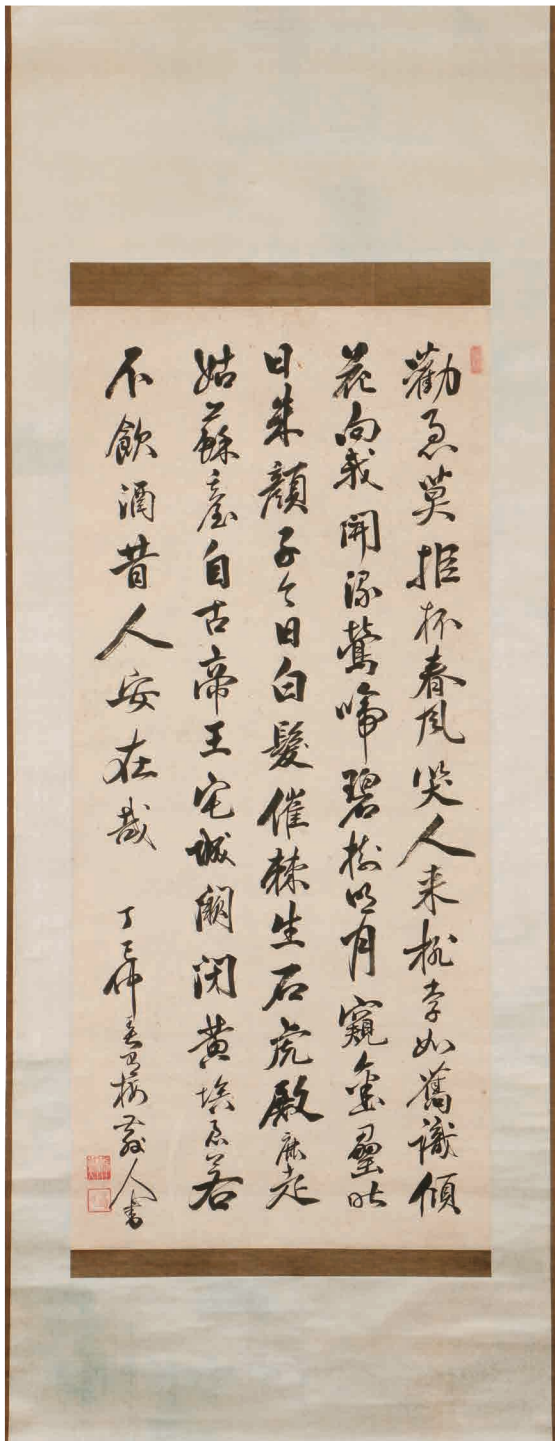 勸君莫拒杯春風笑人来桃李如舊識傾
花向我開流鶯啼碧樹明月窺金罍昨
日朱顏子今日白髮催棘生石虎殿鹿走
姑蘇臺自古帝王宅城闕閉黄埃君若
不飲酒昔人安在哉
丁巳仲春 人書